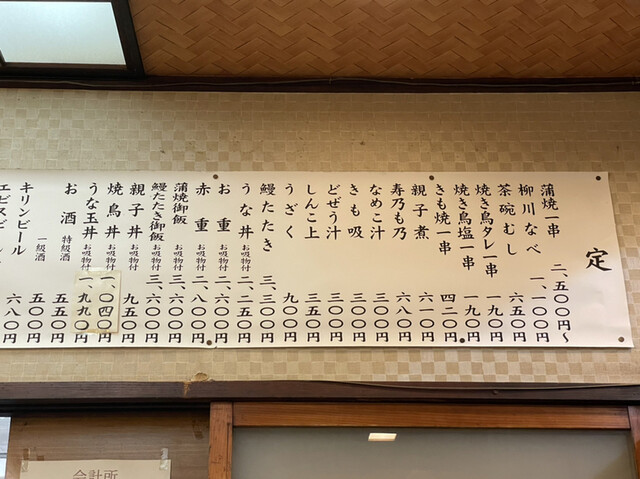 定
蒲焼一串 二、五〇〇円〜
柳川なべ 一、一〇〇円
茶碗むし 六五〇円
焼き鳥タレ一串 一九〇円
焼き鳥塩一串 一九〇円
きも焼一串 四二〇円
親子煮 六一〇円
寿乃も乃 六八〇円
なめこ汁 三五〇円
きも吸 三〇〇円
どぜう汁 三〇〇円
しんこ上 三五〇円
うざく 九〇〇円
鰻たたき 三、三〇〇円
うな丼 お吸物付 二、二五〇円
お重 お吸物付 二、六〇〇円
赤重 お吸物付 二、八〇〇円
蒲焼御飯 お吸物付 三、六〇〇円
鰻たたき御飯 お吸物付 三、六〇〇円
親子丼 お吸物付 九五〇円
焼鳥丼 お吸物付 一、〇四〇円
うな玉丼 お吸物付 一、九九〇円
お酒 特級酒 五五〇円
一級酒 五〇〇円
キリンビール 六八〇円
会計所